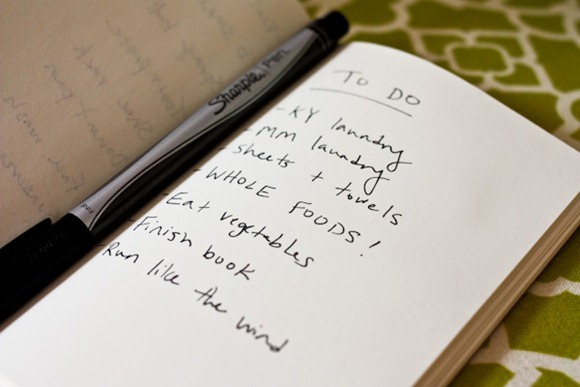 TO DO
- KY laundry
- MM laundry
- sheets + towels
- WHOLE FOODS!
- Eat vegetables
- Finish book
- Run like the wind
Sharpie Pen